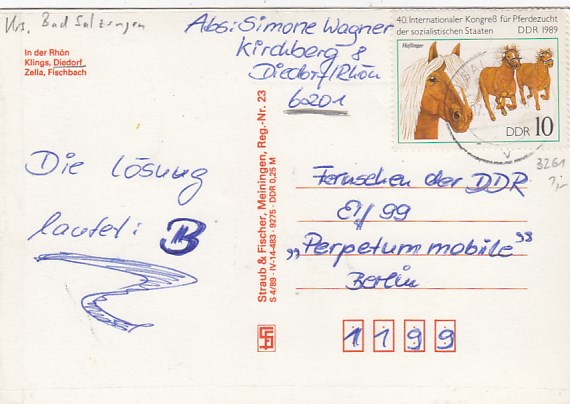 Krs. Bad Salzungen
In der Rhön
Klings, Diedorf,
Zella, Fischbach
Abs: Simone Wagner
Kirchberg 8
Diedorf/Rhön
6201
40. Internationaler Kongreß für Pferdezucht
der sozialistischen Staaten
DDR 1989
Haflinger
DDR 10
3261
Die Lösung
lautet:
B
Straub & Fischer, Meiningen, Reg.-Nr. 23
S 4/89 · IV-14-483 · 9275 · DDR 0,25 M
Fernsehen der DDR
"Perpetum mobile"
Berlin
1199